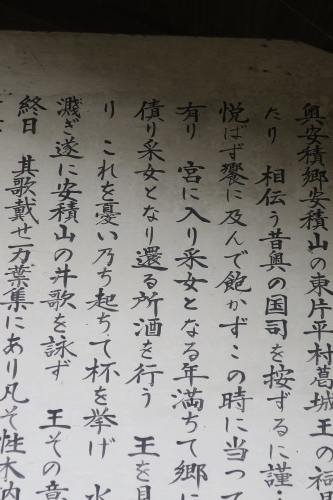 奥安積郷安積山の東片平村葛城王の祠
たり 相伝う昔奥の国司を按ずるに謹
悦ばず饗に及んで飽かずこの時に当って
有り 宮に入り采女となる年満ちて郷に
債り采女となり還る所酒を行う 王を見
り これを憂い乃ち起ちて杯を挙げ 水
濺ぎ遂に安積山の井歌を詠ず 王その意
終日 其歌戴せ万葉集にあり凡そ性木内